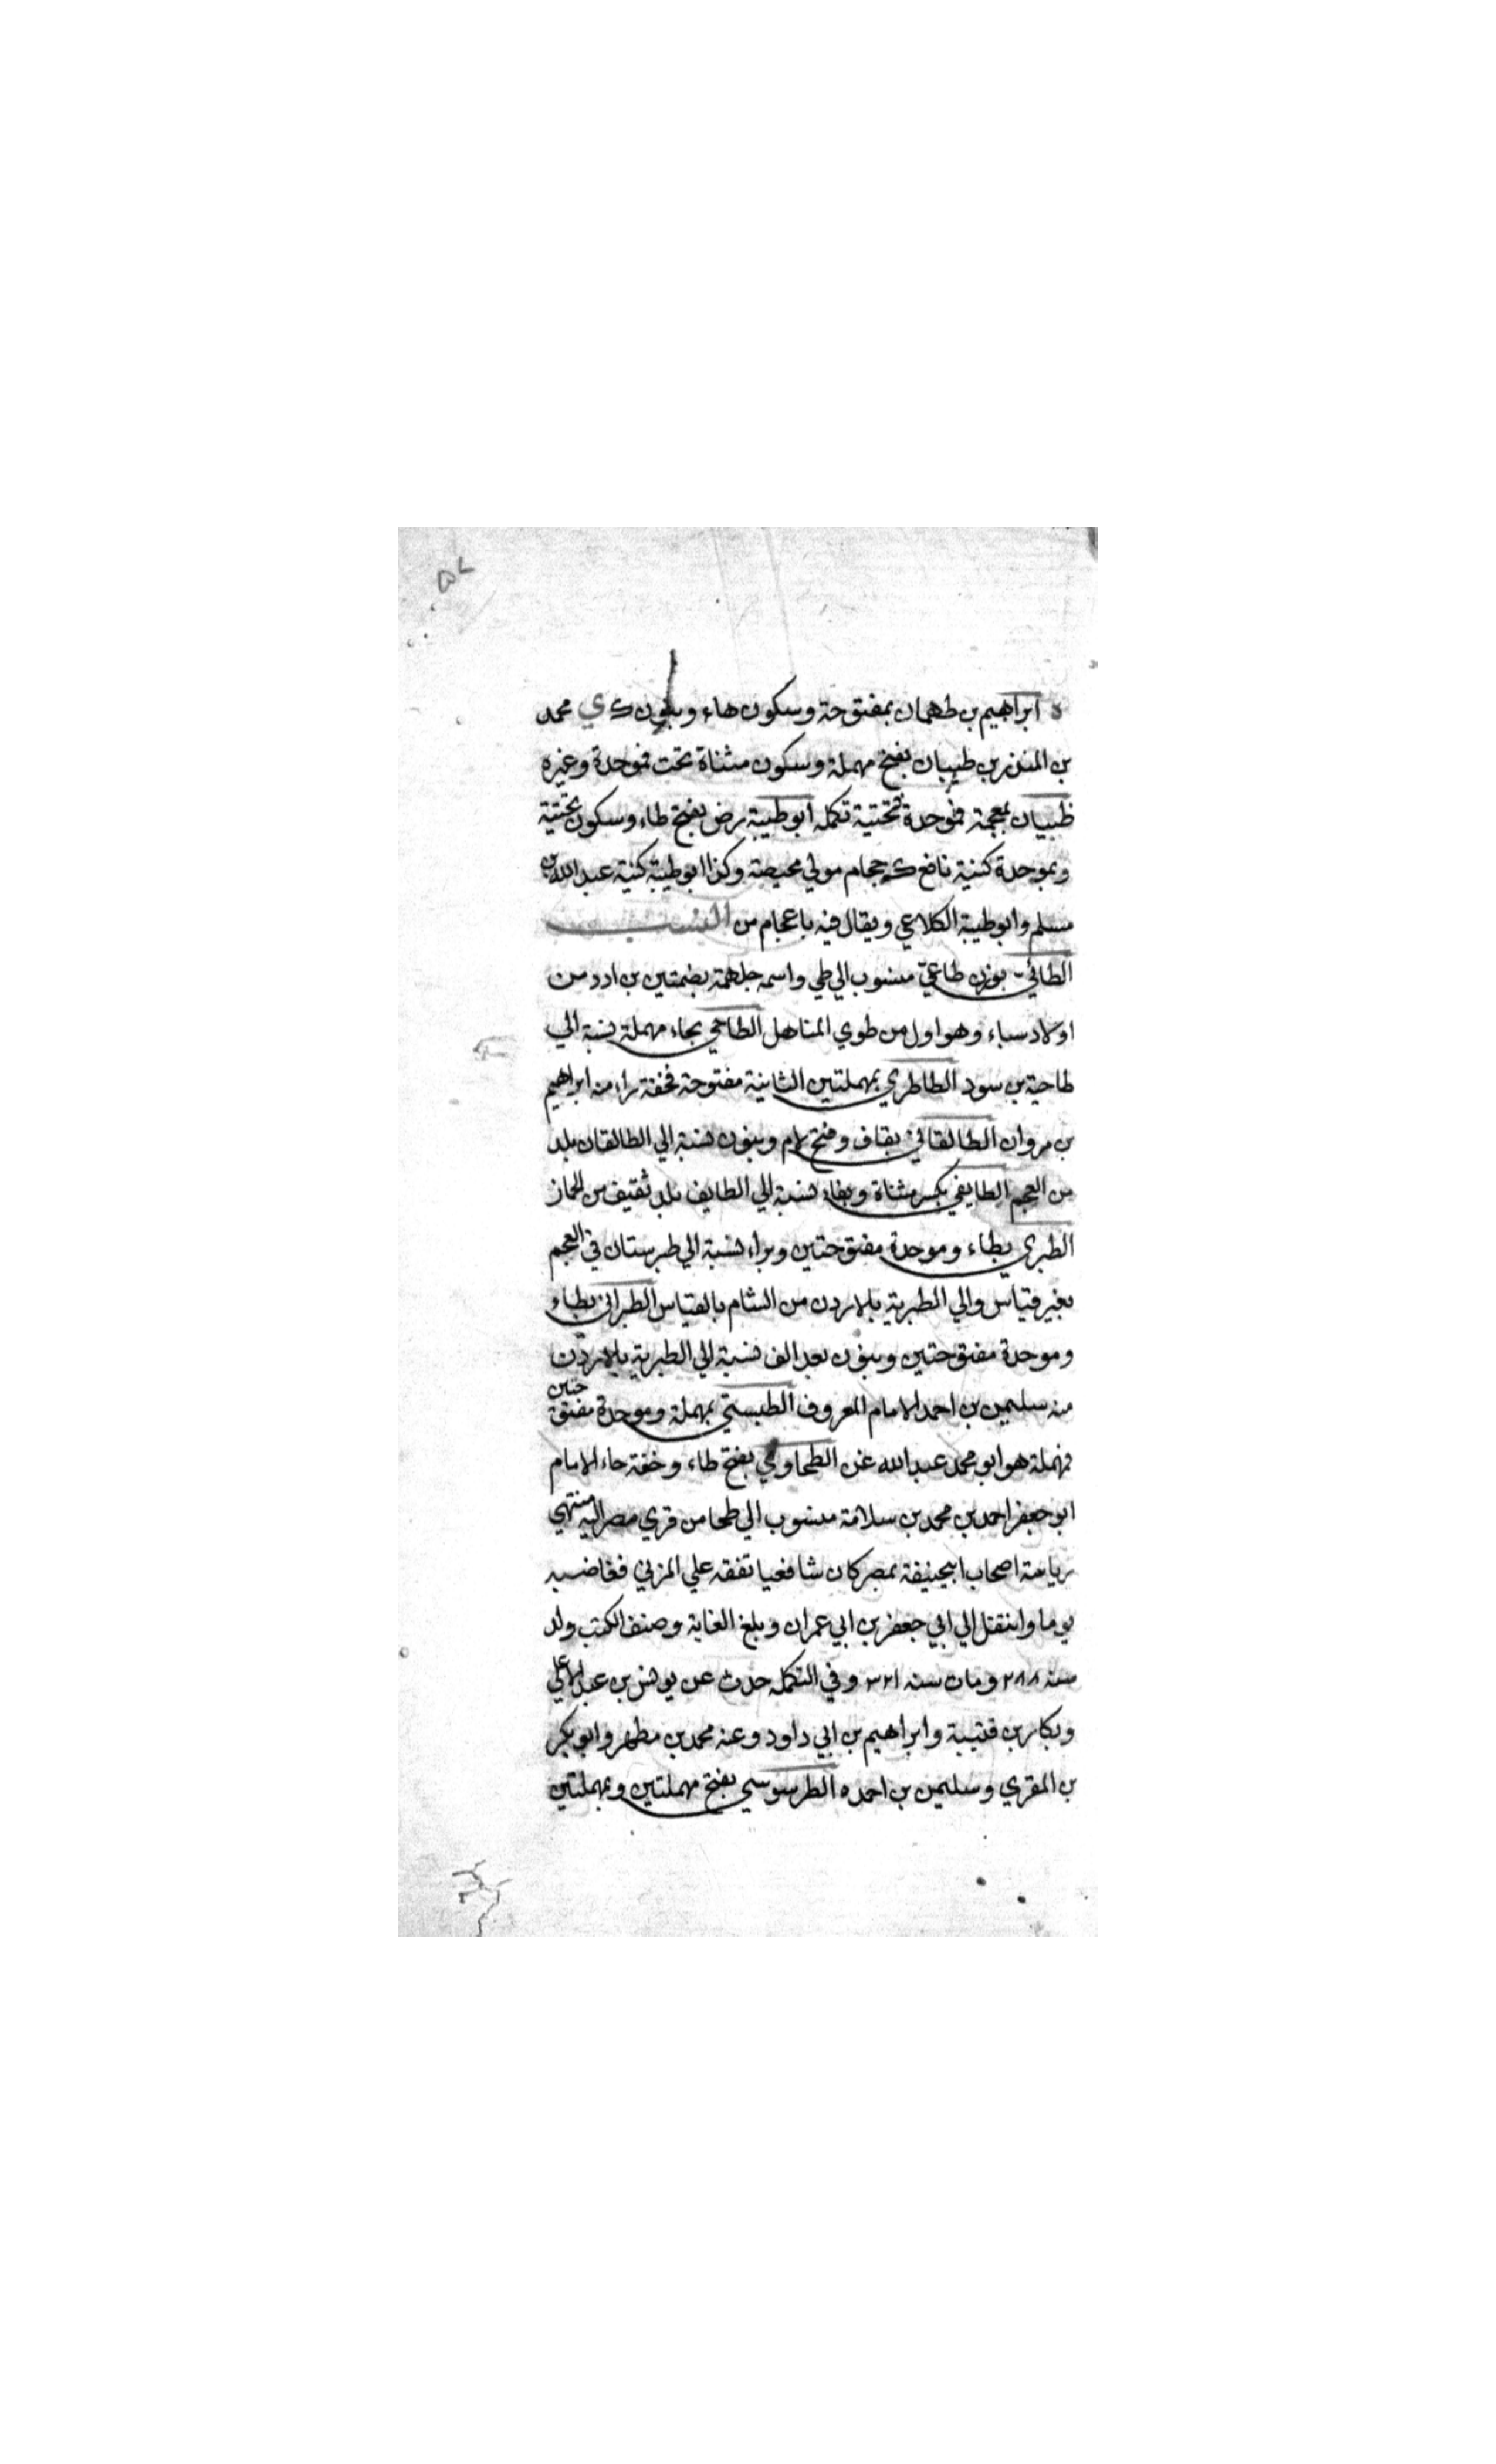 ه ابراهيم بن طهمان بمفتوحة وسكون هاء وبنون ك ي محمد
بن المنذر بن طيبان بفتح مهملة وسكون مثناة تحت فموحدة وغيره
ظبيان بمعجمة فموحدة فتحتية تكمله ابو طيبة رض بفتح طاء وسكون تحتية
وبموحدة كنية نافع ك حجام مولي محيصة وكذا ابو طيبة كنية عبد الله بن
مسلم وابو طيبة الكلاعي ويقال فيه باعجام من النسب
الطائي بوزن طاعي منسوب الي طي واسمه جلهمة بضمتين بن ادد من
اولاد سباء وهو اول من طوي المناهل الطاحي بحاء مهملة نسبة الي
طاحية بن سود الطاطري بمهملتين الثانية مفتوحة فخفة راء منه ابراهيم
بن مروان الطالقاني بقاف وفتح لام وبنون نسبة الي الطالقان بلد
من العجم الطايفي بكسر مثناة وبفاء نسبة الي الطايف بلد ثقيف من الحجاز
الطبري بطاء وموحدة مفتوحتين وبراء نسبة الي طبرستان في العجم
بغير قياس والي الطبرية بالاردن من الشام بالقياس الطبراني بطاء
وموحدة مفتوحتين وبنون بعد الف نسبة الي الطبرية بالاردن
منه سليمن بن احمد الامام المعروف الطبستي بمهملة وموحدة مفتوحتين
فمهملة هو ابو محمد عبد الله عن الطحاوي بفتح طاء وخفة حاء الامام
ابو جعفر احمد بن محمد بن سلامة منسوب الي طحا من قري مصر اليه منتهي
رياسة اصحاب ابيحنيفة بمصر كان شافعيا تفقه علي المزني فغاضبه
يوما وانتقل الي ابي جعفر بن ابي عمران وبلغ الغاية وصنف الكتب ولد
سنه ٢٨٨ ومات سنه ٣٢١ وفي التكمله حدث عن يونس بن عبد الاعلي
وبكار بن قتيبة وابراهيم بن ابي داود وعنه محمد بن مظهر وابو بكر
بن المقري وسليمن بن احمد ه الطرسوسي بفتح مهملتين وبمهملتين